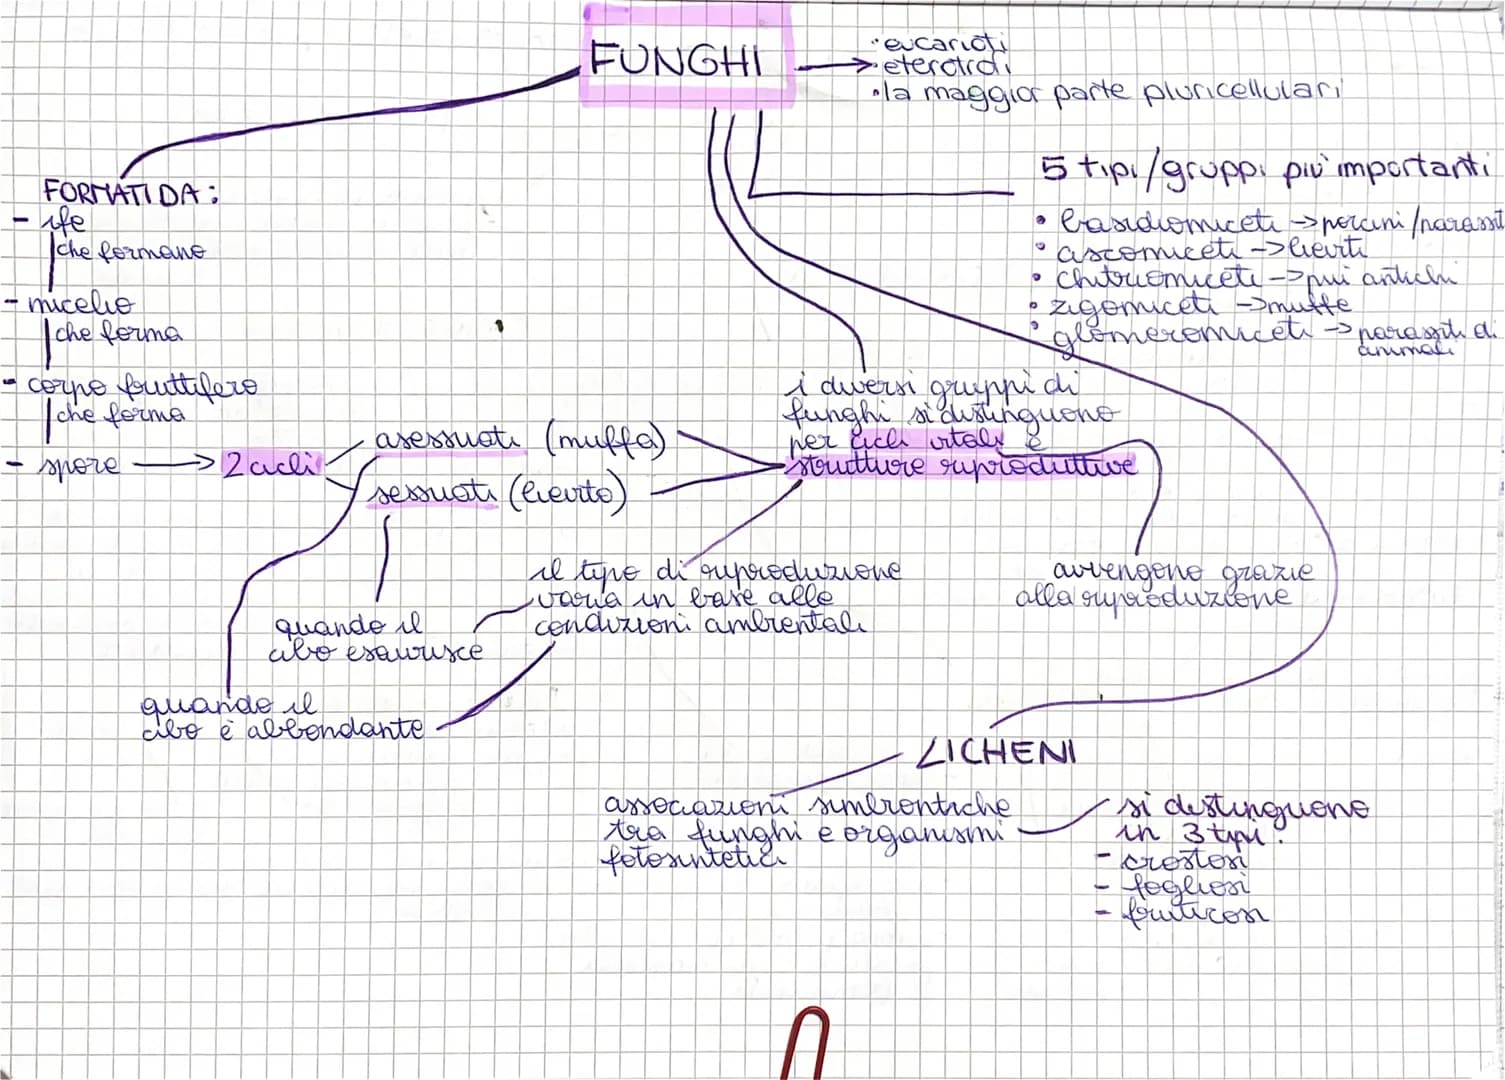 FUNGHI
• eucarioti
• eterotrofi
• la maggior parte pluricellulari
FORMATI DA:
- ife
che formano
- micelio
che forma
- corpo fruttifero
che forma
- spore → 2 cicli
asessuati (muffa)
sessuati (lievito)
5 tipi/gruppi più importanti
• basidiomiceti → porcini/parassit
• ascomiceti → lieviti
• chitridiomiceti → più antichi
• zigomiceti → muffe
• glomeromiceti → parassiti di
animali
i diversi gruppi di
funghi si distinguono
per cicli vitali e
strutture riproduttive
il tipo di riproduzione
varia in base alle
condizioni ambientali
avvengono grazie
alla riproduzione
quando il
cibo esaurisce
quando il
cibo è abbondante
LICHENI
associazioni simbiontiche
tra funghi e organismi
fotosintetici
si distinguono
in 3 tipi:
- crostosi
- fogliosi
- fruticosi